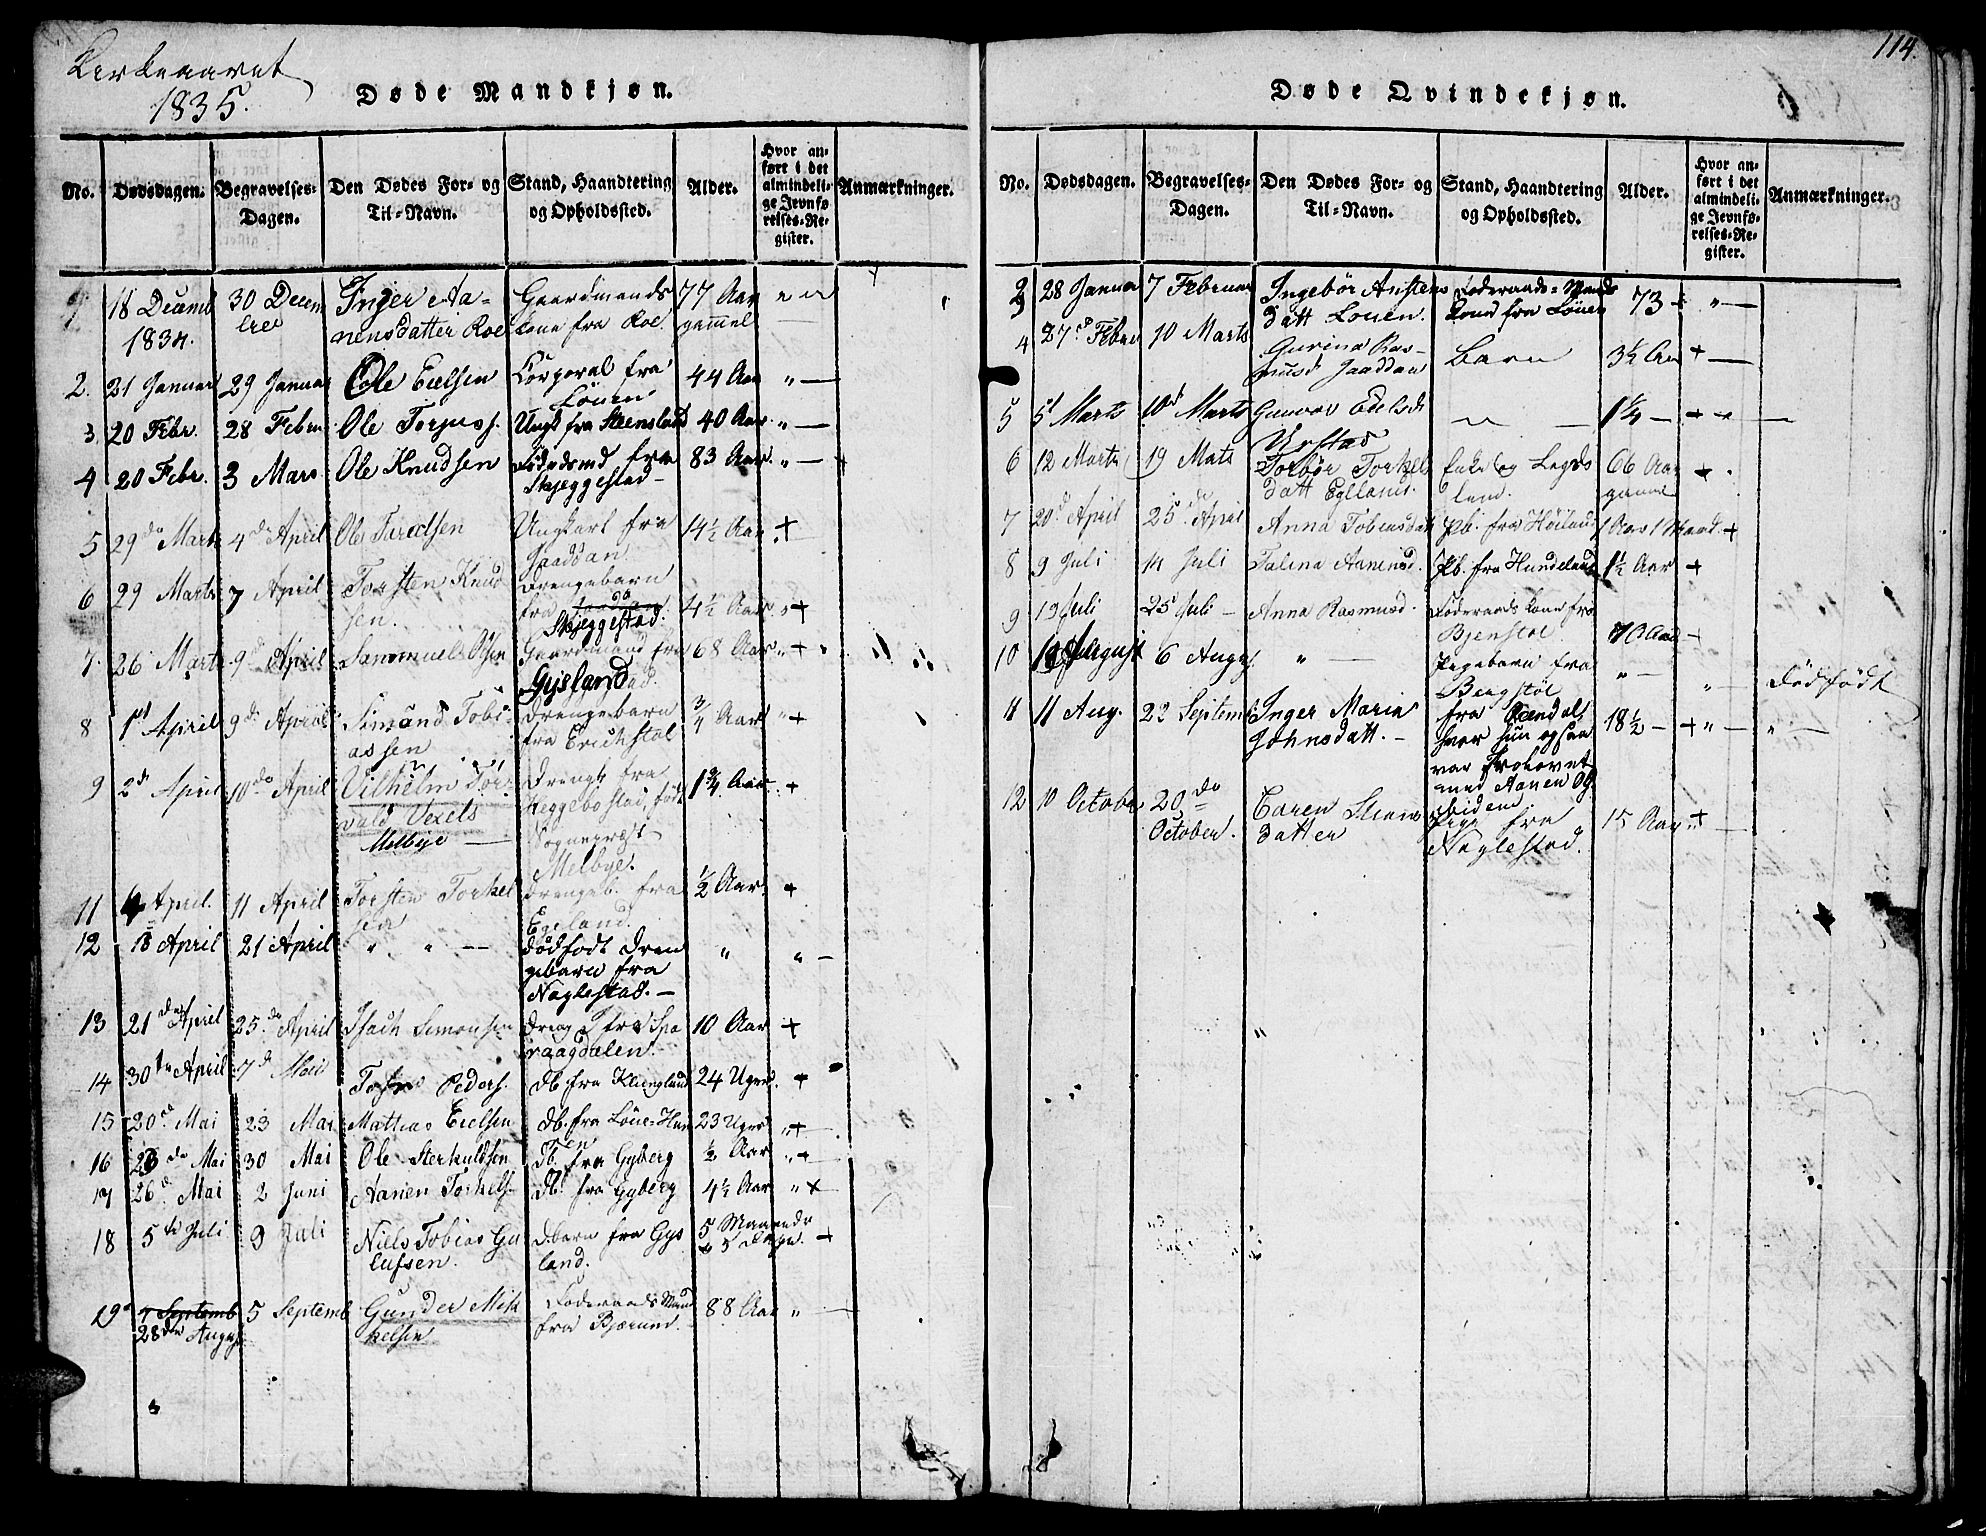 Kirkeaaret
1835.
Døde Mandkjøn.
No. Dødsdagen. Begravelses-Dagen. Den Dødes For- og Til-Navn. Stand, Haandtering og Opholdssted. Alder. Hvor anført i det almindelige Jevnførelses-Register. Anmærkninger.
18 Decemb 1834. 30 Decembree Inger Aanensdatter Roe Gaardmands Kone fra Roe. 77 Aar gammel
2. 21 Januar 29 Januar Ole Eielsen Corporal fra Løuen 44 Aar " —
3 20 Febr. 28 Febru Ole Torjuss. Ungk fra Steensland 40 Aar " —
4 20 Febr. 3 Mars Ole Knudsen fra Skjeggestad 83 Aar. " —
5 29 de Marts 4 de April Ole Ungkarl fra Jaaddan 14½ Aar. +
6 29 Marts 7 April Torsten Knudsen. Drengebarn fra Skjeggestad. 4½ Aar +
7. 26 Marts 9 de April Sammuel Olsen Gaardmand fra Gysland 68 Aar " +
8 1st April 9 de April Simund Tobiassen Drengebarn fra Erichstøl ¾ Aar " +
9 2 de April 10 de April Vilhelm Torvald Vexels Melbye — Dreng fra Heggebostad, født Sogneprest Melbye. 1¾ Aar +
11 April. 11 April Torsten Torkelsen Drengeb. fra Egeland. ½ Aar +
12 18 April 21 April " " — Dødfødt Drengebarn fra Naglestad. — " " —
13 21 de April 25 de April Isach Simonsen Dreng fra Sparaagdalen. 10 Aar +
14 30 te April 7 d Mai Peders. Db fra Klungland 24 Uger +
15 20 de Mai 23 Mai Mathias Eielsen Db. fra Løuen 23 Uger " +
16 26 de Mai 30 Mai Ole Sterkuldsen Db fra Gyberg ½ Aar " +
17 26 d. Mai 2 Juni Aanen Torkels. Db. fra Gyberg 4½ Aar " +
18 5 te Juli 9 Juli Niels Tobias Gulufsen. Dbarn fra Gysland. 5 Maaneder 5 Dage. +
19 Septemb 28 de August 5 Septemb Gunder Mikkelsen Føderaads Mand fra Bjærund. 88 Aar " —
114.
Døde Qvindekjøn.
No. Dødsdagen. Begravelses-Dagen. Den Dødes For- og Til-Navn. Stand, Haandtering og Opholdssted. Alder. Hvor anført i det almindelige Jevnførelses-Register. Anmærkninger.
3 28 Januar 7 Februar Ingebør Anstensdatt Løuen. Føderaads-Mands Kone fra Løuen 73 " —
4 27 de Febru 10 Marts Gurina Rasmusd Jaaddan Barn 3½ Aar + —
5 5 Marts 10 d Marts Gunvor Edelsd 1¼ — + " —
6 12 Marts 19 Mats Torbør Torkelsdatt Eglland. Enke og Legdslem. 66 Aar gamel + .
7 20 d. April 25 de April Anna Tobiasdatt Pb. fra Høiland 1 Aar 1 Maaned +
8 9 Juli 14 Juli Talina Aanensd. Pb. fra Hundeland 1½ Aar +
9 19 Juli 25 Juli — Anna Rasmusd. Føderaads Kone fra Bjenstøl 70 Aar —
10 August 6 Augs. " — Pigebarn fra Bergstøl " — " — Dødfødt
11 11 Aug. 22 Septemb Inger Maria Johnsdatt. — fra hvor hun ogsaa var Trolovet med Aanen Ols. ibidem 18½ — + " — " —
12 10 Octobr 20 de October. Caren Steensdatter Pige fra Naglestad. 15 Aar " + —